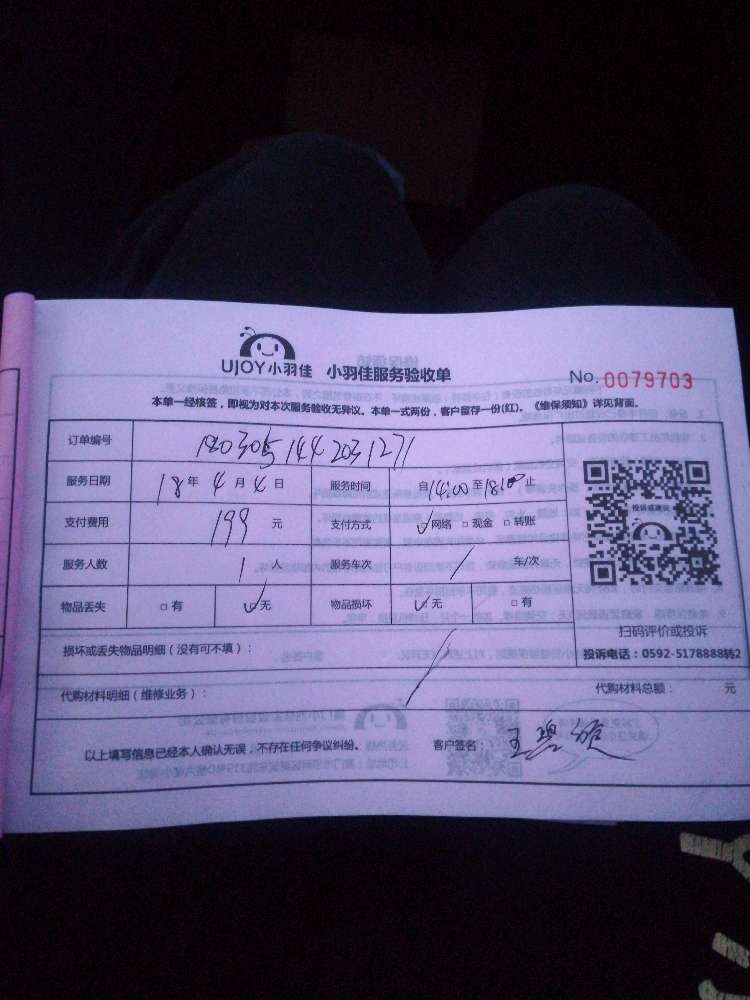 UJOY小羽佳 小羽佳服务验收单 No. 0079703
本单一经核签，即视为对本次服务验收无异议。本单一式两份，客户留存一份(红)。《维保须知》详见背面。
订单编号 180305144203127 1
服务日期 18年 4月 4日 服务时间 自14:00至18:00止
支付费用 199 元 支付方式 ☑网络 □现金 □转账
投诉或建议
服务人数 1 人 服务车次 / 车/次
物品丢失 □有 ☑无 物品损坏 ☑无 □有
扫码评价或投诉
损坏或丢失物品明细（没有可不填）： /
投诉电话：0592-5178888转2
代购材料明细（维修业务）： 代购材料总额： 元
以上填写信息已经本人确认无误，不存在任何争议纠纷。 客户签名： 王碧颂